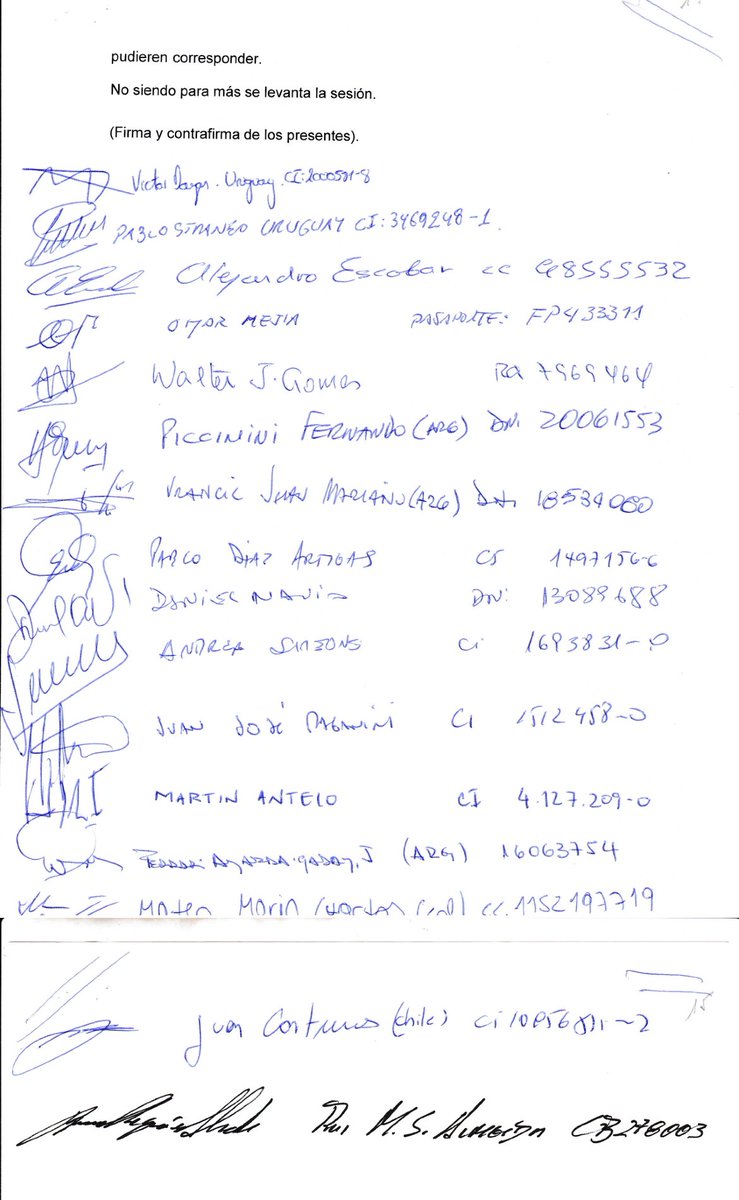 pudieren corresponder.
No siendo para más se levanta la sesión.
(Firma y contrafirma de los presentes).
Victor . Uruguay. CI:
PABLO STRANEO URUGUAY CI: 3469248-1.
Alejandro Escobar cc 98555532
OMAR MEJIA PASAPORTE: FP433311
Walter J. Gomes 7969464
PICCININI FERNANDO (ARG) DNI 20061553
VRANCIC JUAN MARIANO (ARG) DNI 18534080
PABLO DIAZ ARTIGAS CI 1497156-6
DANIEL NAVIS DNI: 13089688
ANDREA SIMEONE Ci 1693831-0
JUAN JOSÉ PAGANINI CI 1512458-0
MARTIN ANTELO CI 4.127.209-0
(ARG) 16063754
Mateo Marin cc. 1152197719
Juan Contreras (chile) ci
Rui M. S. ALMEIDA CB278003